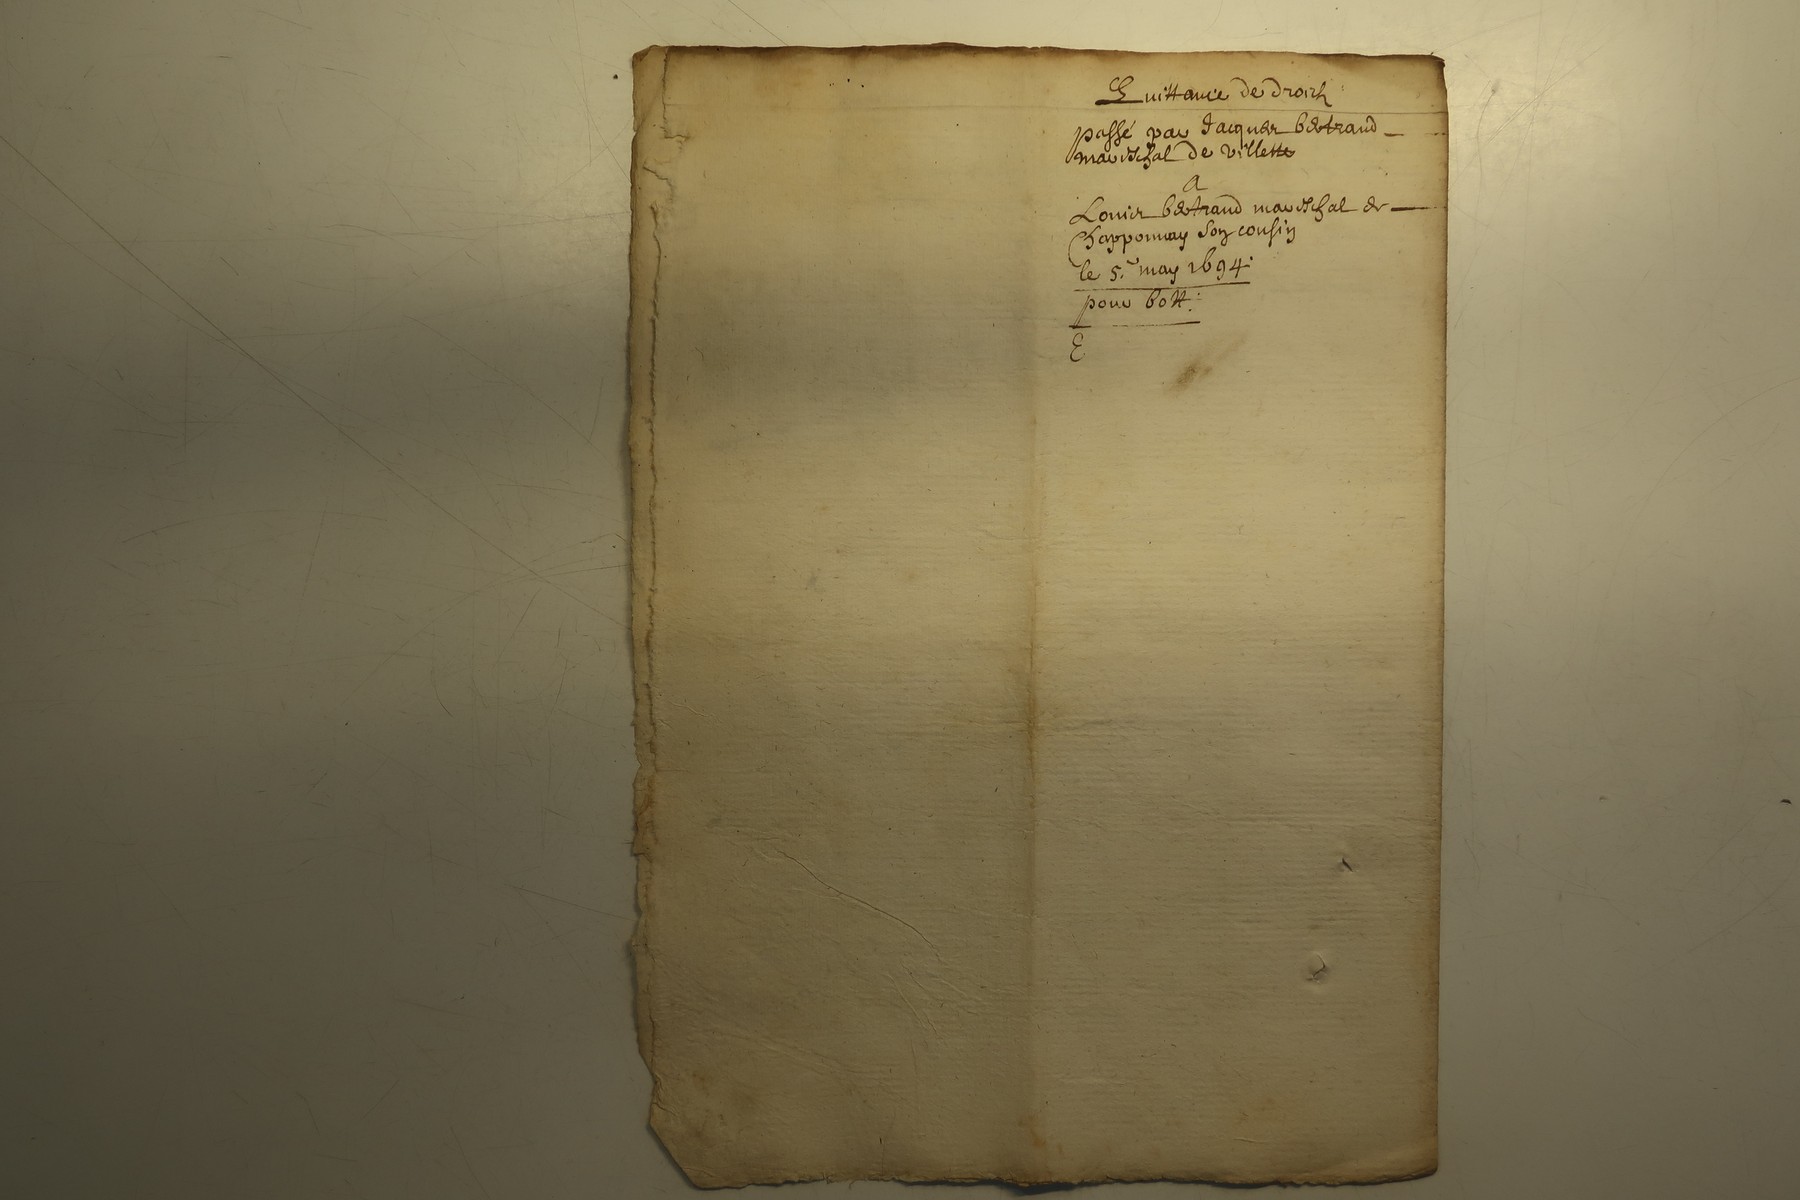 Quittance de droits
passé par Jacques bertrand
mareschal de villette
a
Louis bertrand mareschal de
Chapponnay son cousin
le 5.e may 1694.
pour